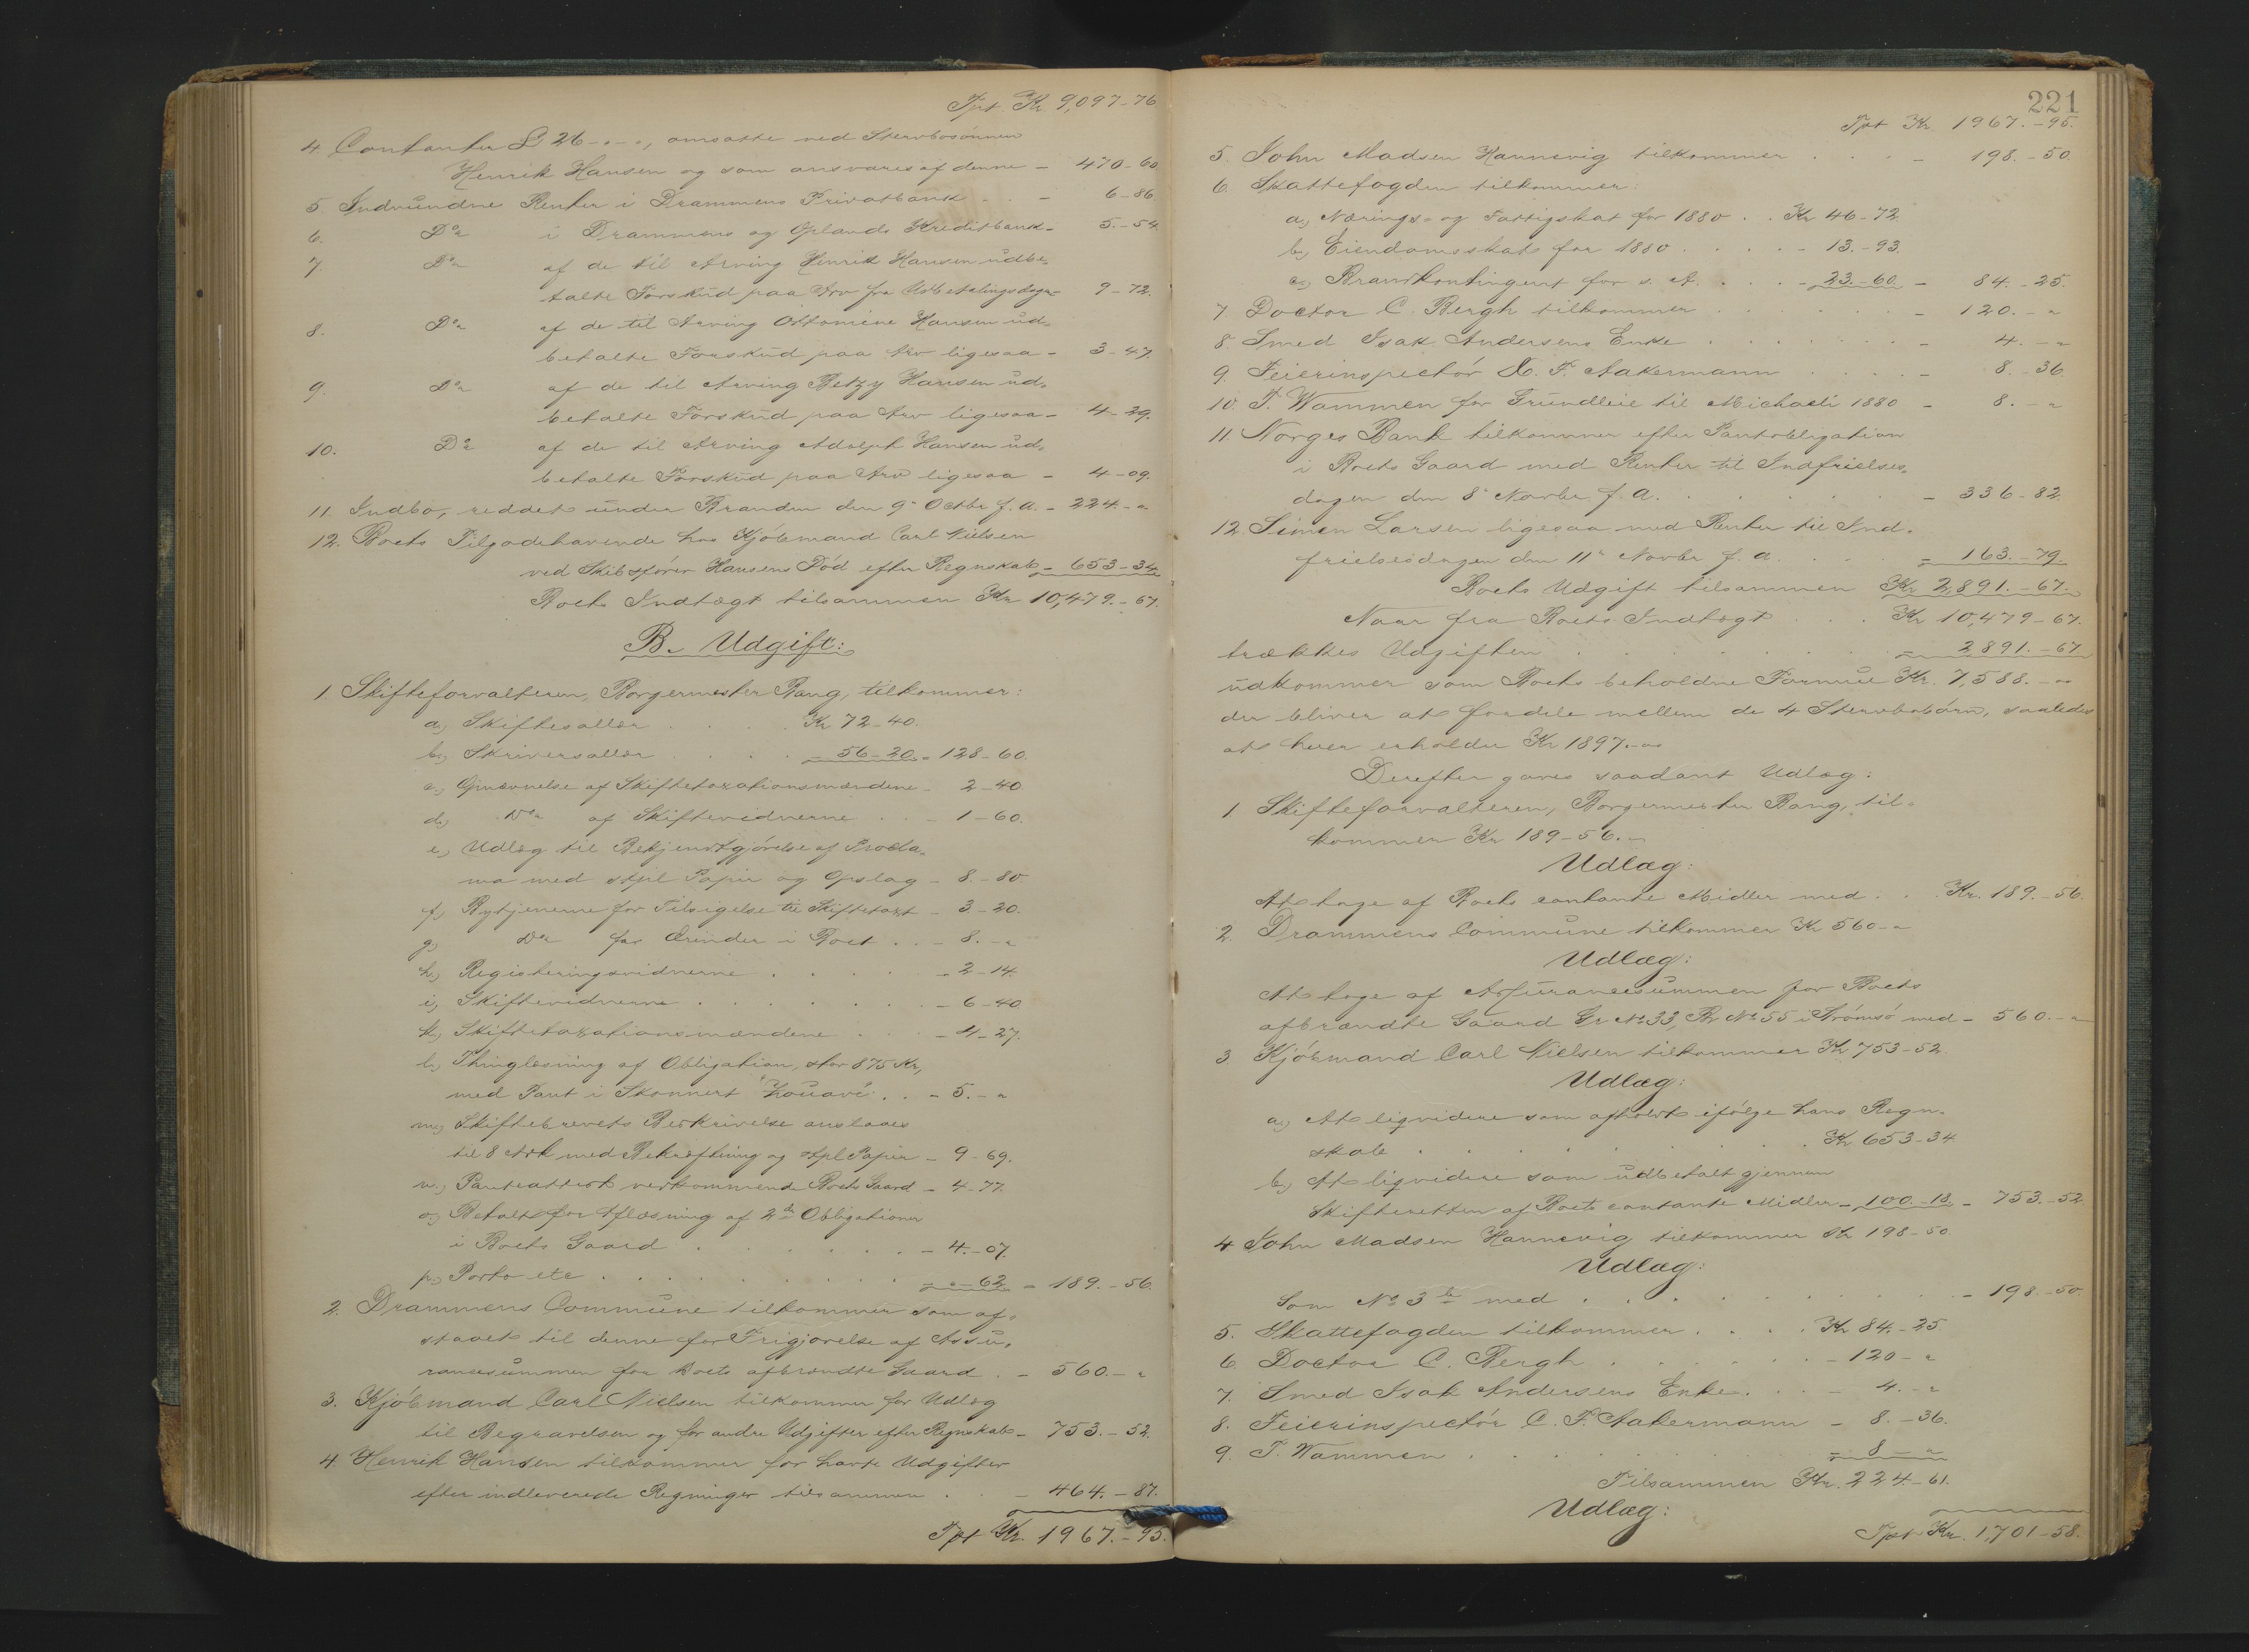 Tpt. Kr. 9,097-76
4. Contanter £ 26-"-", omsatte ved Stervbosønnen
Henrik Hansen og som ansvares af denne - 470-60
5. Indvundne Renter i Drammens Privatbank - 6-86
6. Do i Drammens og Oplands Kreditbank - 5.-54.
7. Do af de til Arving Henrik Hansen udbe-
talte Forskud paa Arv fra Udbetalingsdagen - 9-72.
8. Do af de til Arving Ottomine Hansen ud-
betalte Forskud paa Arv ligesaa - 3-47.
9. Do af de til Arving Betzy Hansen ud-
betalte Forskud paa Arv ligesaa - 4-29.
10. Do af de til Arving Adolph Hansen ud-
betalte Forskud paa Arv ligesaa - 4-09.
11. Indbo, reddet under Branden den 9de Octbr f. A. - 224.-"
12. Boets Tilgodehavende hos Kjøbmand Carl Nielsen
ved Skibsfører Hansens Død efter Regnskab - 653-34.
Boets Indtægt tilsammen Kr 10,479.-67.
B. Udgift:
1. Skifteforvalteren, Borgermester Bang, tilkommer:
a,) Skiftesallær . . . . Kr 72-40.
b,) Skriversallær . . . - 56-20 - 128-60.
c,) Opnævnelse af Skiftetaxationsmændene - 2-40
d,) Do af Skiftevidnerne . . - 1-60.
e,) Udlæg til Bekjendtgjørelse af Procla-
ma med stpl Papir og Opslag - 8.-80
f,) Bytjenerne for Tilsigelse til Skiftetaxt - 3-20.
g,) Do for Ærinder i Boet . . - 8.-"
h,) Registeringsvidnerne . . . . - 2-14.
i,) Skiftevidnerne . . . . . . . - 6-40
k,) Skiftetaxationsmændene . . - 4-27.
l,) Thinglæsning af Obligation, stor 875 Kr,
med Pant i Skonnert "Zouave" . . - 5.-"
m,) Skiftebrevets Beskrivelse anslaaes
til 8 Ark med Bekræftning og stpl Papir - 9-69.
n,) Panteattest vedkommende Boets Gaard - 4-77.
o,) Betalt for Aflæsning af 2de Obligationer
i Boets Gaard . . . . . . - 4.-07.
p,) Porto etc . . . . . . . . - "-62 - 189.-56.
2. Drammens Commune tilkommer som af-
staaet til denne for Frigjørelse af Assu-
rancesummen for Boets afbrændte Gaard . - 560.-"
3. Kjøbmand Carl Nielsen tilkommer for Udlæg
til Begravelsen og for andre Udgifter efter Regnskab - 753.-52.
4 Henrik Hansen tilkommer for havte Udgifter
efter indleverede Regninger tilsammen . . - 464.-87.
Tpt Kr. 1967.-95.
221
Tpt Kr 1967.-95.
5. John Madsen Hannevig tilkommer . . . . - 198.-50.
6. Skattefogden tilkommer:
a,) Nærings- og Fattigskat for 1880 . . Kr 46-72.
b,) Eiendomsskat for 1880 . . . . - 13.-93.
c,) Brandkontingent for s. A. . . . - 23.-60. - 84.-25.
7. Doctor C. Bergh tilkommer . . . . . . - 120.-"
8. Smed Isak Andersens Enke . . . . . . - 4.-"
9. Feierinspectør C. F. Aakermann . . . . - 8.-36
10. T. Wammen for Grundleie til Michaeli 1880 - 8.-"
11. Norges Bank tilkommer efter Pantobligation
i Boets Gaard med Renter til Indfrielses-
dagen den 8de Novbr. f. A. . . . . . - 336-82.
12. Simen Larsen ligesaa med Renter til Ind-
frielsesdagen den 11te Novbr f. A. . . . - 163.-79.
Boets Udgift tilsammen Kr 2,891.-67.
Naar fra Boets Indtægt . . . Kr 10,479-67.
trækkes Udgiften . . . . . . . . - 2,891.-67
udkommer som Boets beholdne Formue Kr. 7,588.-"
der bliver at fordele mellem de 4 Stervbobørn, saaledes
at hver erholder Kr 1897.-"
Derefter gaves saadant Udlæg:
1 Skifteforvalteren, Borgermester Bang, til-
kommer Kr 189-56.
Udlæg:
At tage af Boets contante Midler med . . Kr. 189.-56.
2. Drammens Commune tilkommer Kr 560-"
Udlæg:
At tage af Assurancesummen for Boets
afbrændte Gaard Gr No 33, Br No 55 i Strømsø med - 560.-"
3. Kjøbmand Carl Nielsen tilkommer Kr 753-52
Udlæg:
a,) At liqvidere som afholdt ifølge hans Regn-
skab . . . . . . . . . Kr 653-34
b,) At liqvidere som udbetalt gjennem
Skifteretten af Boets contante Midler - 100.-18. - 753.-52
4 John Madsen Hannevig tilkommer Kr 198-50.
Udlæg:
Som No 3 b med . . . . . . . . . . - 198.-50
5. Skattefogden tilkommer . . . . Kr 84.-25.
6. Doctor C. Bergh . . . . . . - 120-"
7. Smed Isak Andersens Enke . . . - 4.-"
8. Feierinspectør C. F. Aakermann - 8.-36.
9. T. Wammen . . . . . . . . . - 8-"
Tilsammen Kr. 224-61.
Udlæg:
Tpt Kr. 1,701-58.